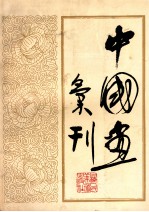 中國畫
彙刊